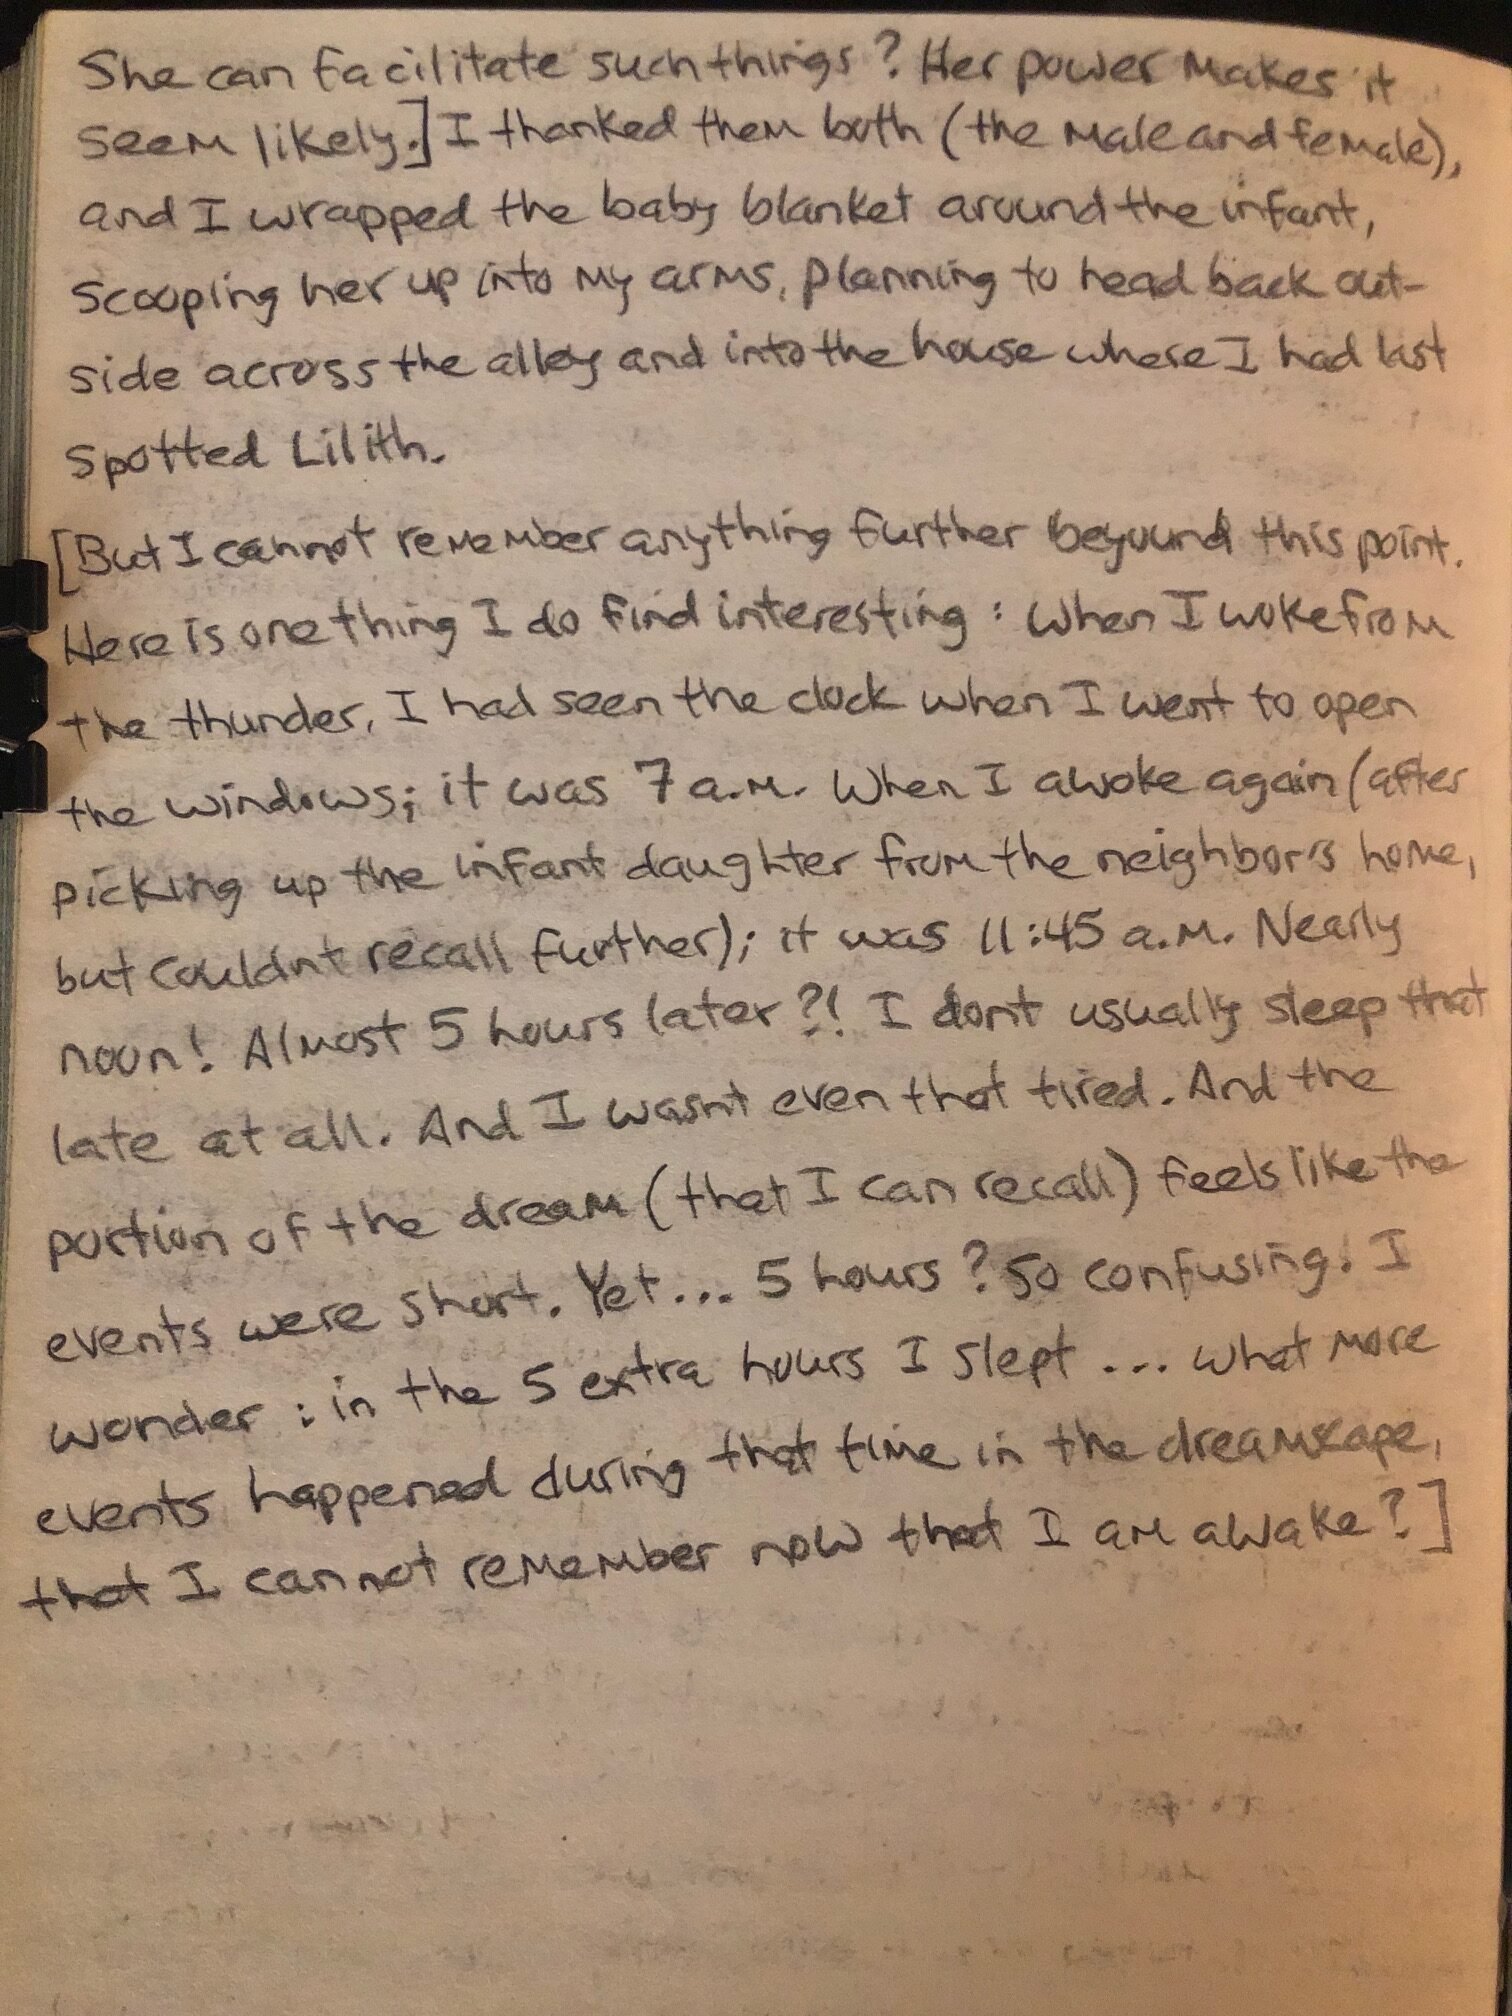 She can facilitate such things? Her power makes it
seem likely.] I thanked them both (the male and female),
and I wrapped the baby blanket around the infant,
scooping her up into my arms, planning to head back out-
side across the alley and into the house where I had last
spotted Lilith.
[But I cannot remember anything further beyound this point.
Here is one thing I do find interesting: When I woke from
the thunder, I had seen the clock when I went to open
the windows; it was 7 a.m. When I awoke again (after
picking up the infant daughter from the neighbor's home,
but couldnt recall further); it was 11:45 a.m. Nearly
noon! Almost 5 hours later?! I dont usually sleep that
late at all. And I wasnt even that tired. And the
portion of the dream (that I can recall) feels like the
events were short. Yet... 5 hours? So confusing! I
wonder: in the 5 extra hours I slept... what more
events happened during that time in the dreamscape,
that I cannot remember now that I am awake?]